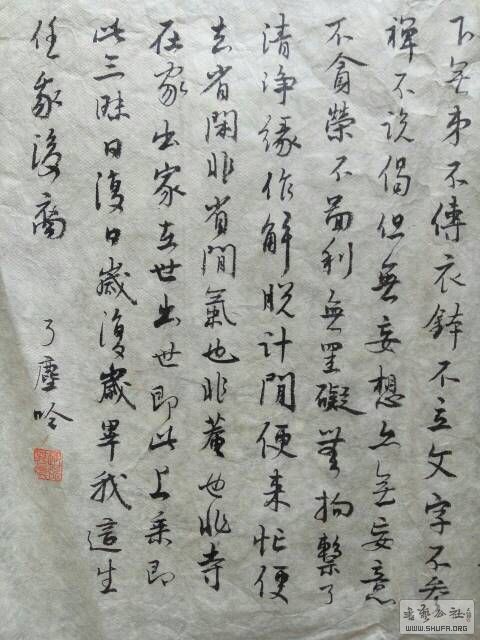 下无弟不傳衣鉢不立文字不參
禪不說偈但無妄想亦无妄意
不貪榮不圖利無罣礙無拘繫了
清淨緣作解脫計閒便来忙便
去省閒非省閒氣也非菴也非寺
在家出家在世出世即此上乘即
此三昧日復日歲復歲畢我這生
任後裔
了塵吟
書藝公社
WWW.SHUFA.ORG